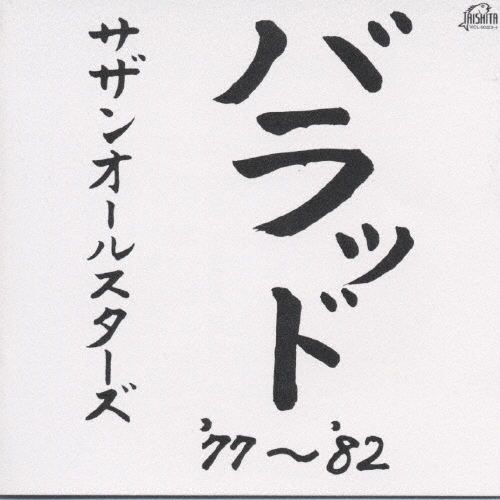 バラッド
'77～'82
サザンオールスターズ
TAISHITA